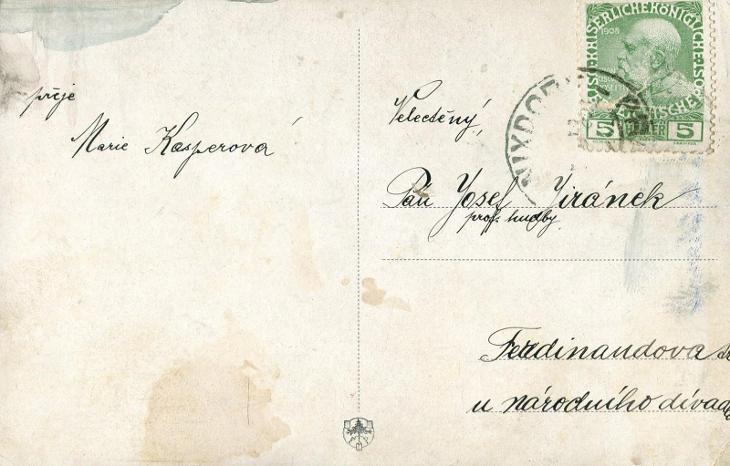 přeje
Marie Kasperová
Velectěný
Pan Josef Jiránek
prof. hudby
Ferdinandova
u národního divad
NIXDOR
KAISERLICHE KÖNIGLICHE ÖST
1908
5 HELLER 5